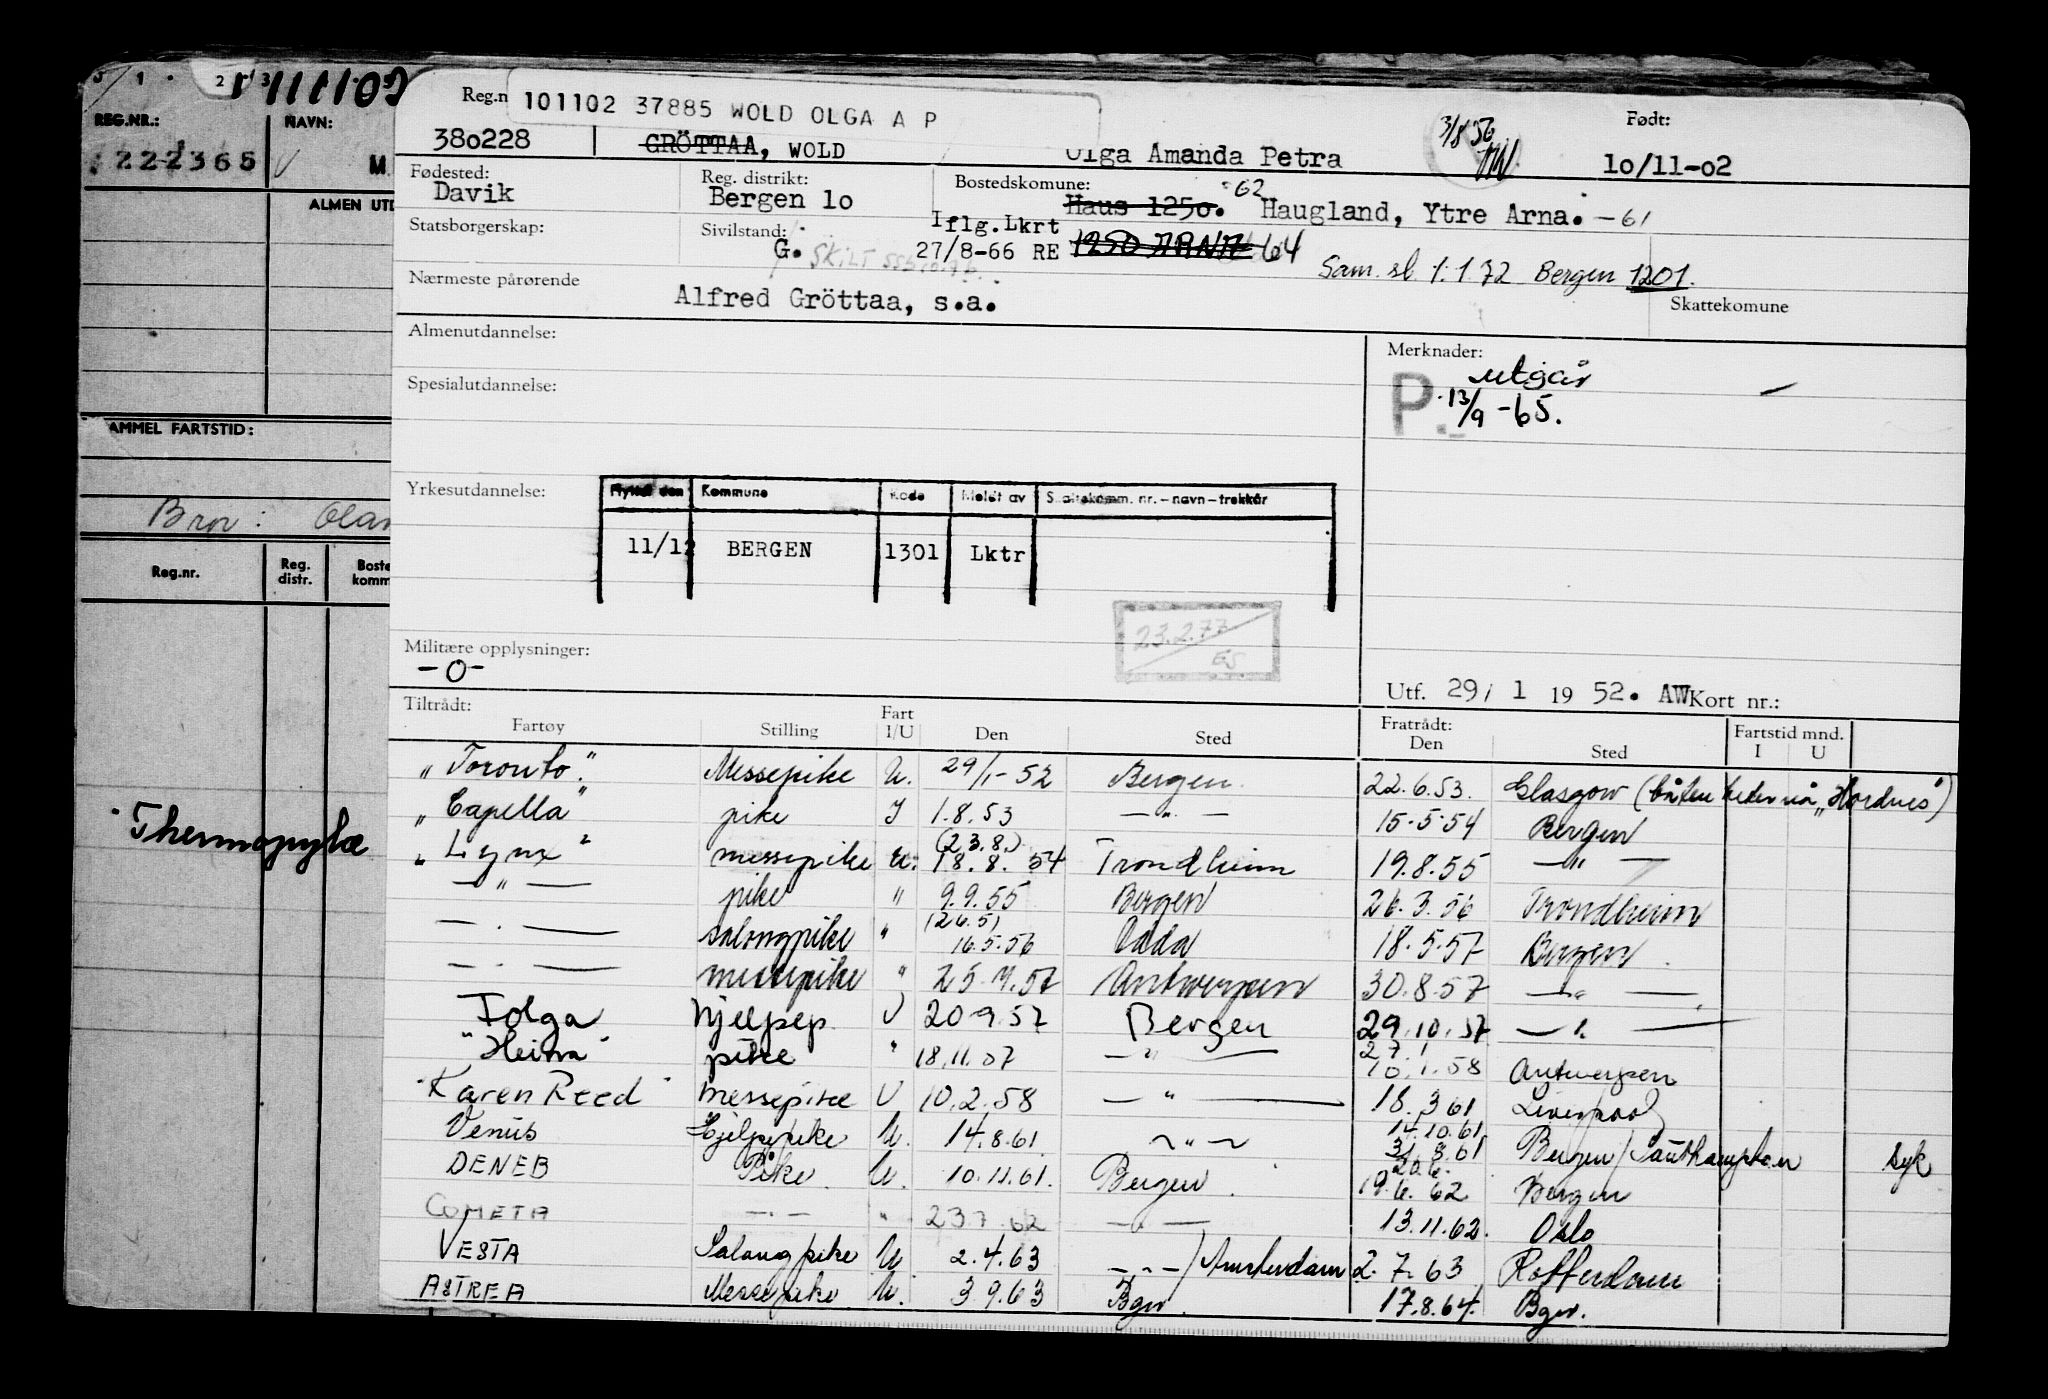 101102
REG.NR.:
NAVN:
222365
M
ALMEN UTD
AMMEL FARTSTID:
Bror: Olav
Reg.nr. Reg. distr. Boste komm
"Thermopylæ
101102 37885 WOLD OLGA A P
Reg.n
380228 GRÖTTAA, WOLD Olga Amanda Petra
3/8 56
Født:
10/11-02
Fødested:
Davik
Reg. distrikt:
Bergen 10
Bostedskomune:
Haus 1250. 62 Haugland, Ytre Arna. -61
Statsborgerskap:
Sivilstand:
G. SKILT
Iflg. Lkrt
27/8-66 RE 1250 ARNA 64
Sam. sl 1.1 72 Bergen 1201.
Nærmeste pårørende
Alfred Gröttaa, s.a.
Skattekomune
Almenutdannelse:
Merknader:
P.
utgår
13/9-65.
Spesialutdannelse:
Yrkesutdannelse:
Flyttet den Kommune Kode Meldt av Skattekomm. nr. - navn - trekkår
11/12 BERGEN 1301 Lktr
23.2.77
ES
Militære opplysninger:
-0-
Utf. 29/1 1952. AW Kort nr.:
Tiltrådt:
Fartøy Stilling Fart I/U Den Sted
Fratrådt:
Den Sted Fartstid mnd. I U
"Toronto." Messepike U. 29/1-52 Bergen. 22.6.53. Glasgow (båten heder nå "Hordnes")
"Capella" pike I 1.8.53 —"— 15.5.54 Bergen
"Lynx" messepike U. (23.8.) 18.8.54 Trondheim 19.8.55 —"—
—"— pike " 9.9.55 Bergen 26.3.56 Trondheim
—"— salongpike " (26.5) 16.5.56 Odda 18.5.57 Bergen
—"— messepike " 25.7.57 Antwerpen 30.8.57 —"—
Tolga hjelpep. U 20.9.57 Bergen 29.10.57 —"—
"Heina" pike " 18.11.57 —"— 27.1 10.1.58 Antwerpen
"Karen Reed" Messepike U 10.2.58 —"— 18.3 61 Liverpool
Venus Hjelpepike U. 14.8.61 —"— 14.10.61 31.8.61 Bergen/Southampton syk
DENEB Pike. U. 10.11.61. Bergen. 20.6. 19.6.62 Bergen
COMETA —"— " 23 7.62 —"— 13.11.62. Oslo
VESTA Salongpike U 2.4.63 —"—/Amsterdam 2.7.63 Rotterdam
ASTREA Messepike U. 3.9.63 Bgn. 17.8.64. Bgn.